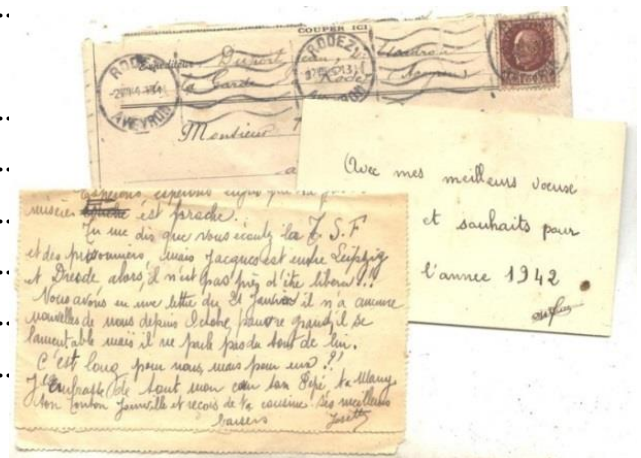 COUPER ICI
RODEZ
AVEYRON
RODEZ
Expéditeur: Dupont
la Garde
Monsieur
Avec mes meilleurs voeux
et souhaits pour
l'année 1942
Espérons, espérons
misères est proche.
Tu me dis que vous écoutez la T.S.F
et des prisonniers, mais Jacques est entre Leipzig
et Dresde alors, il n'est pas près d'être libéré!!
Nous avons eu une lettre du 21 Janvier il n'a aucune
nouvelles de nous depuis Octobre, pauvre grand, il se
lamentable mais il ne parle pas du tout de lui.
C'est long pour nous mais pour eux?!
J'embrasse de tout mon cœur ton Pépé, ta Mamy
ton Tonton Joinville et reçois de ta cousine ses meilleurs
baisers Josette